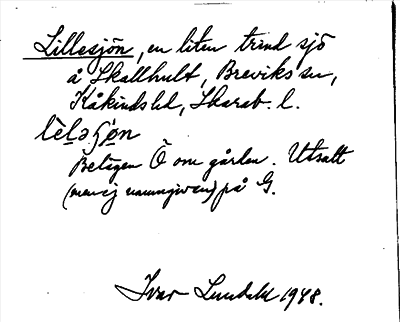 Lillesjön, en liten trind sjö
å Skallhult, Breviks sn,
Kåkinds hd, Skarab. l.
lìl̠əʃø̀n
Belägen Ö om gården. Utsatt
(men ej namngiven) på G.
Ivar Lundahl 1948.